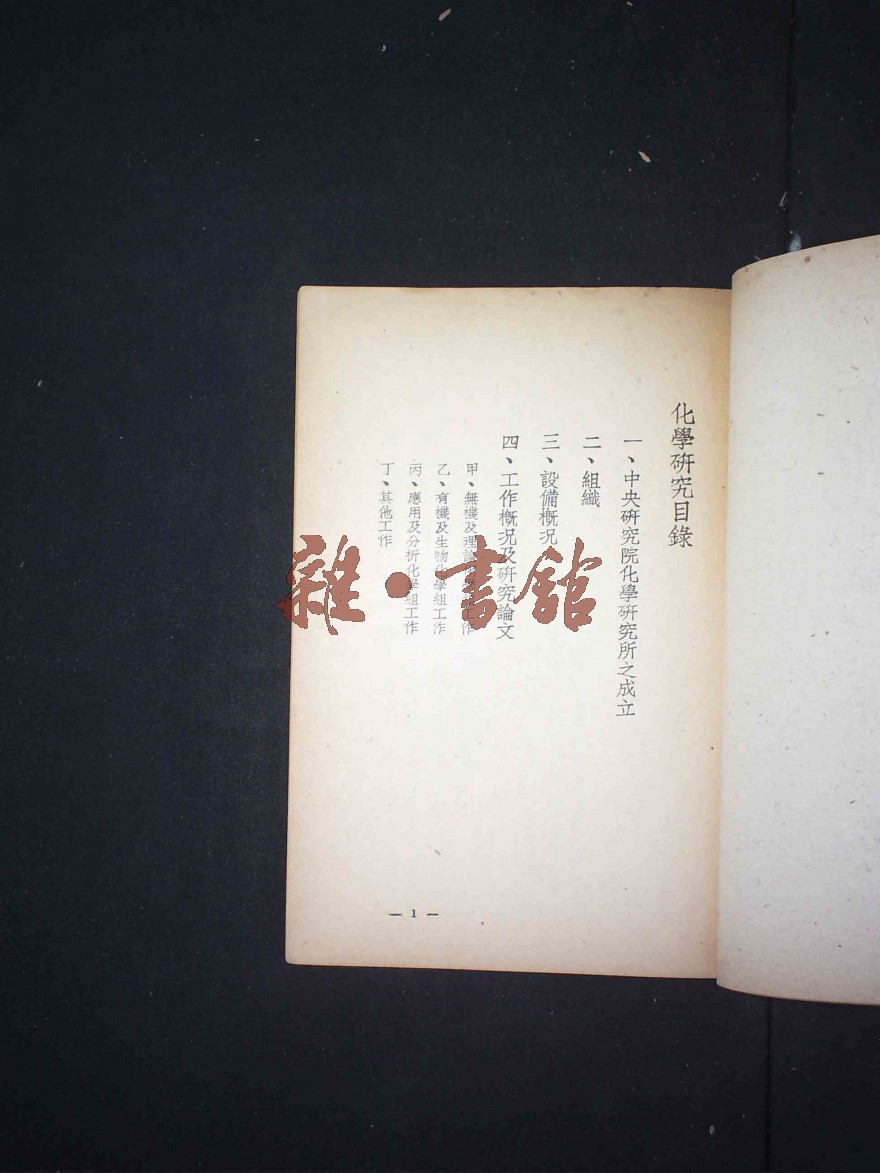 化學硏究目錄
一、中央硏究院化學硏究所之成立
二、組織
三、設備概况
四、工作概况及硏究論文
甲、無機及理論化學組工作
乙、有機及生物化學組工作
丙、應用及分析化學組工作
丁、其他工作
— 1 —
雜·書館